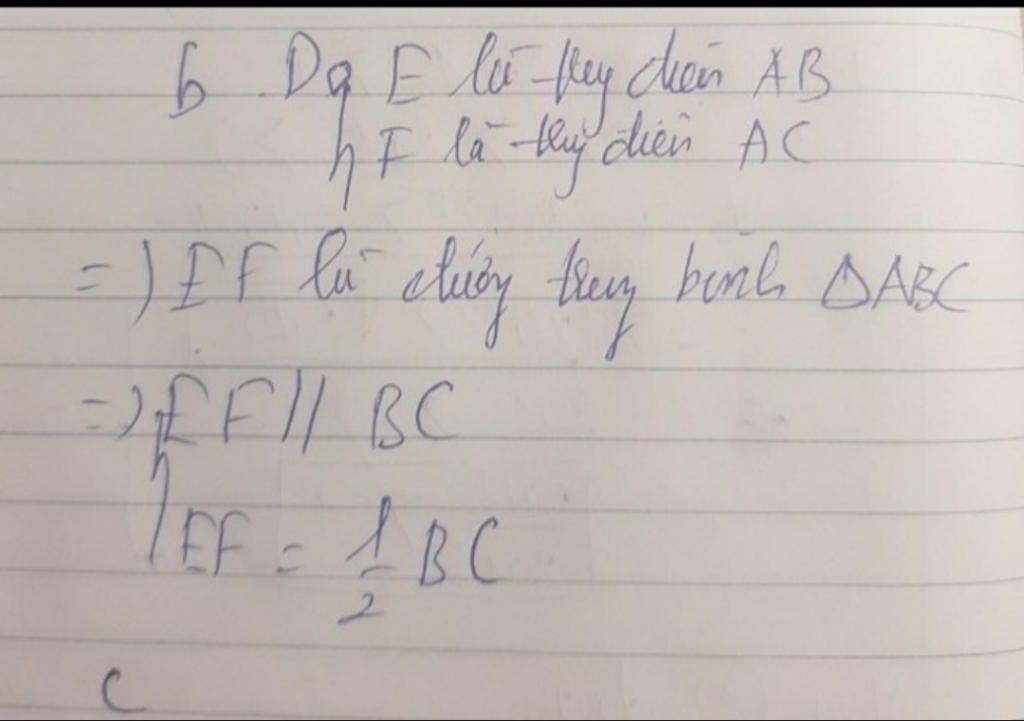 b. Do E là trung điểm AB
F là trung điểm AC
=) EF là đường trung bình ΔABC
=) EF // BC
EF = 1/2 BC
c